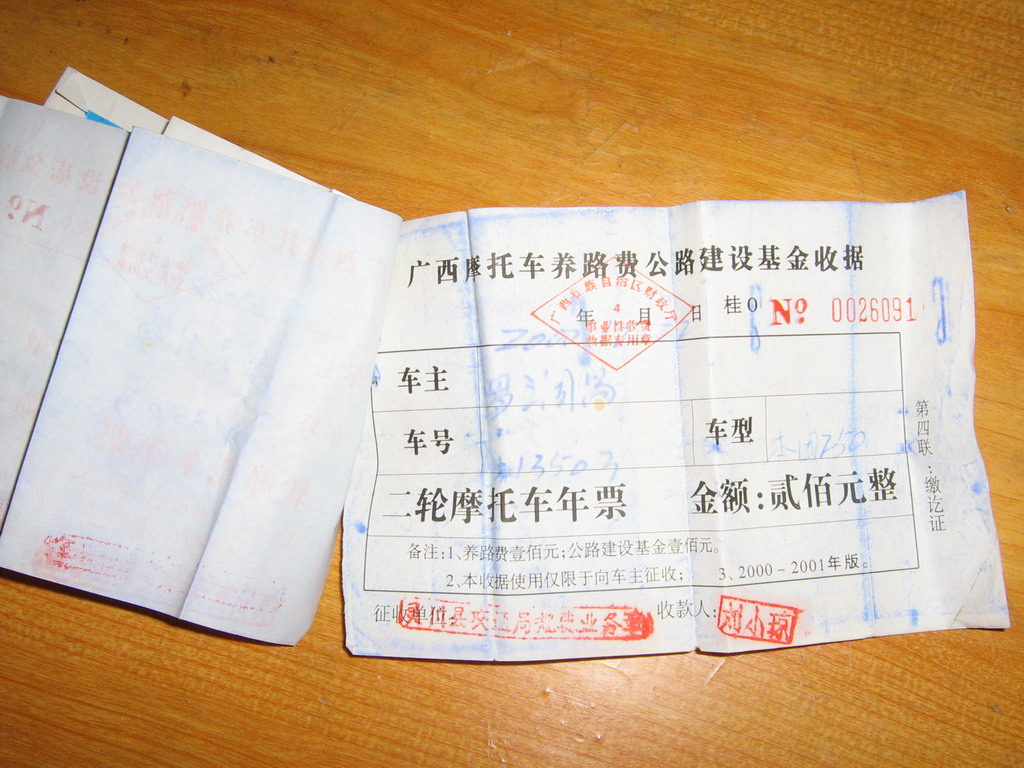 广西摩托车养路费公路建设基金收据
广西壮族自治区财政厅
年 4 月 日 桂0 № 0026091
事业性收费
收据专用章
车主
车号 13503 车型 本田250
二轮摩托车年票 金额:贰佰元整
备注:1、养路费壹佰元;公路建设基金壹佰元。
2、本收据使用仅限于向车主征收; 3、2000-2001年版。
征收单位: 县交通局规费业务章 收款人: 刘小琼
第四联:缴讫证